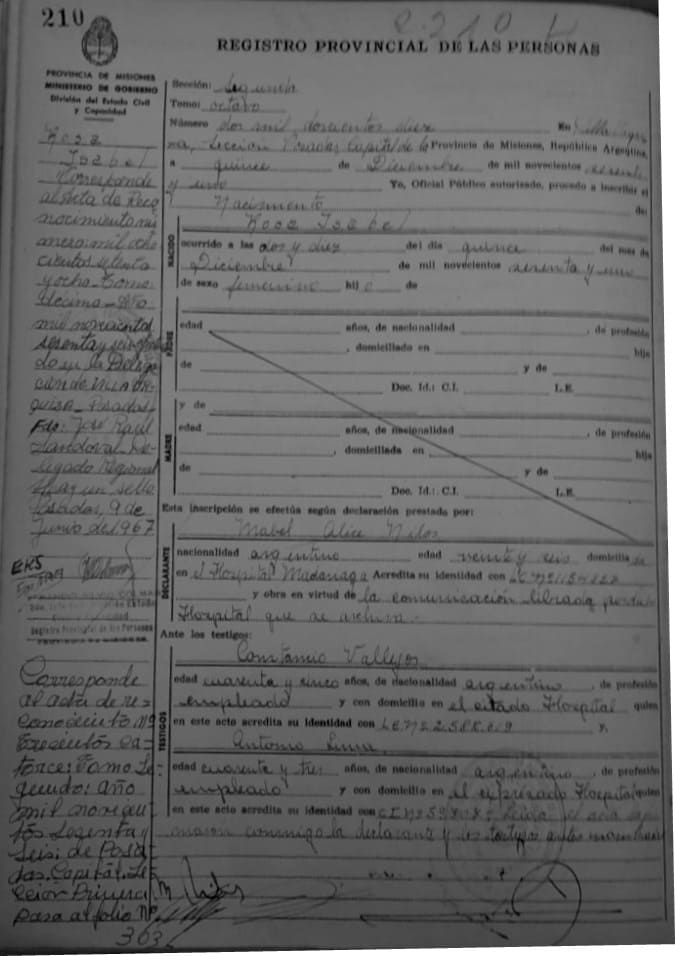 210
2210
REGISTRO PROVINCIAL DE LAS PERSONAS
PROVINCIA DE MISIONES
MINISTERIO DE GOBIERNO
División del Estado Civil
y Capacidad
Rosa
Isabel
Corresponde
al acta de Reco
nocimiento nú
mero: mil ocho
cientos setenta
y ocho - Tomo
Décimo - Año
mil novecientos
sesenta y seis
da en la Delega
ción de Villa Ur-
quiza - Posadas
Fdo: José Raúl
Sandoval - De-
legado Regional
Hay un sello
Posadas, 9 de
Junio de 1967
EKS
Registro Provincial de las Personas
Corresponde
al acta de re-
conocimiento Nº
Trescientos ca-
torce: Tomo Se-
gundo: año
mil novecien-
tos sesenta y
seis: de Posa-
das. Capital. Sec
ción Primera.
pasa al folio Nº
363
Sección: Segunda
Tomo: octavo
Número dos mil doscientos diez En Villa Urqui
za, Sección Posadas Capital de la Provincia de Misiones, República Argentina,
a quince de Diciembre de mil novecientos sesenta
y uno Yo, Oficial Público autorizado, procedo a inscribir el
Nacimiento de:
NACIDO
Rosa Isabel
ocurrido a las dos y diez del día quince del mes de
Diciembre de mil novecientos sesenta y uno
de sexo femenino hij o de
PADRE
edad años, de nacionalidad , de profesión
, domiciliado en hijo
de y de
Doc. Id.: C.I. L.E.
MADRE
y de
edad años, de nacionalidad , de profesión
, domiciliada en hija
de y de
Doc. Id.: C.I. L.E.
Esta inscripción se efectúa según declaración prestada por:
DECLARANTE
Mabel Alice
nacionalidad argentino edad veinte y seis domicilia da
en el Hospital Madariaga Acredita su identidad con
y obra en virtud de la comunicación librada por el
Hospital que se archiva.-
Ante los testigos:
TESTIGOS
Constancio Vallejos
edad cuarenta y cinco años, de nacionalidad argentino, de profesión
empleado y con domicilio en el citado Hospital quien
en este acto acredita su identidad con y,
Antonio
edad cuarenta y tres años, de nacionalidad argentino, de profesión
empleado y con domicilio en el expresado Hospital quien
en este acto acredita su identidad con Leída el acta
conmigo la declarante y los testigos